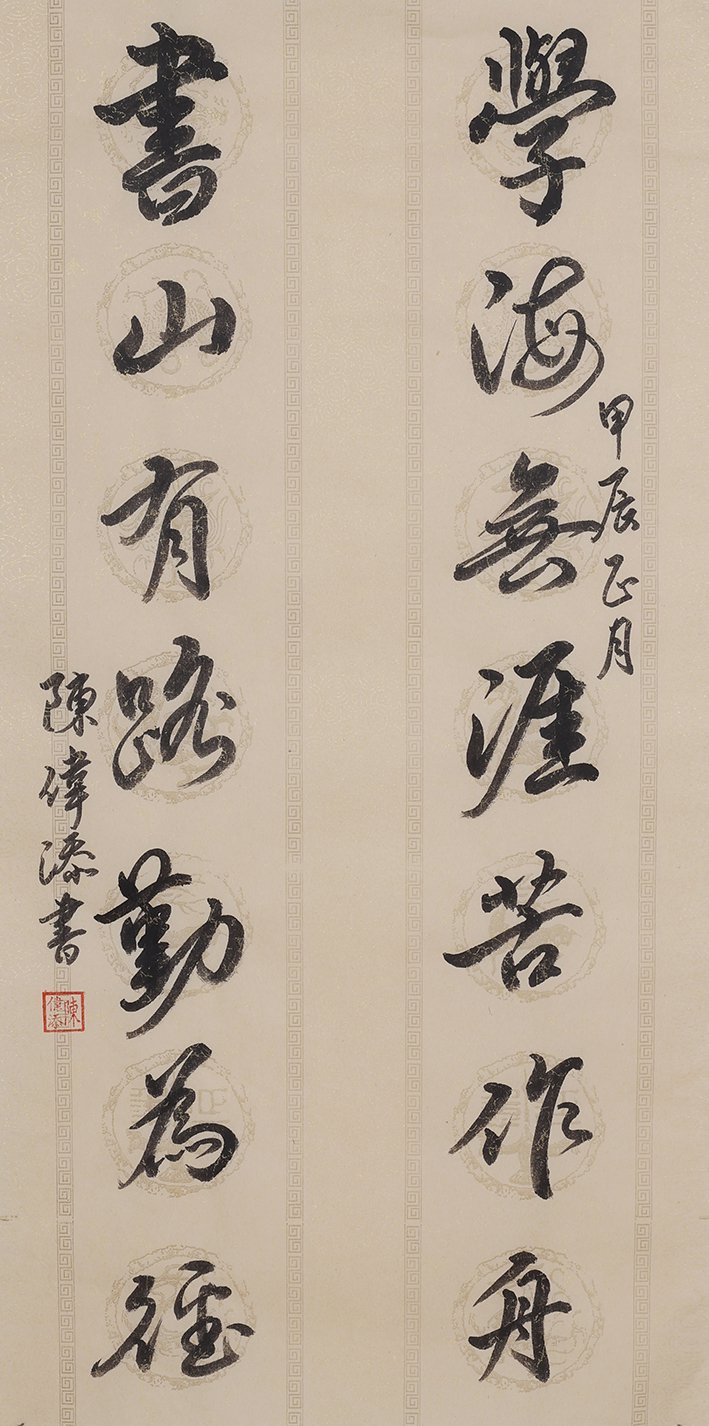 學海無涯苦作舟
甲辰正月
書山有路勤為徑
陳偉添書
陳偉添